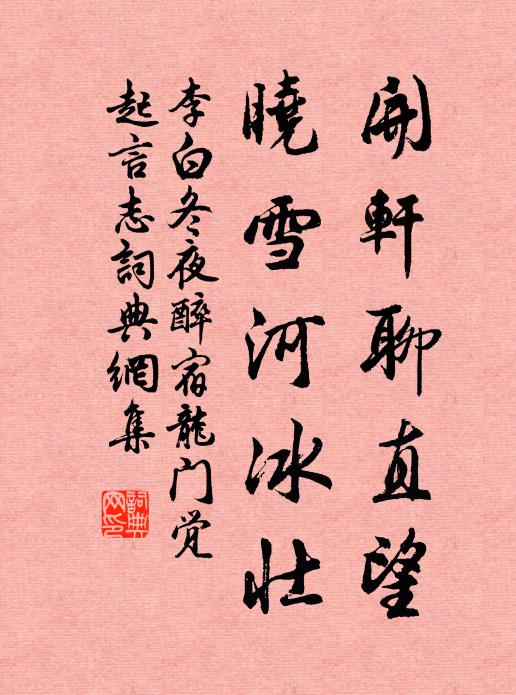 開軒聊直望
曉雪河冰壯
李白冬夜醉宿龍门觉
起言志詞典網集
詞典
网印